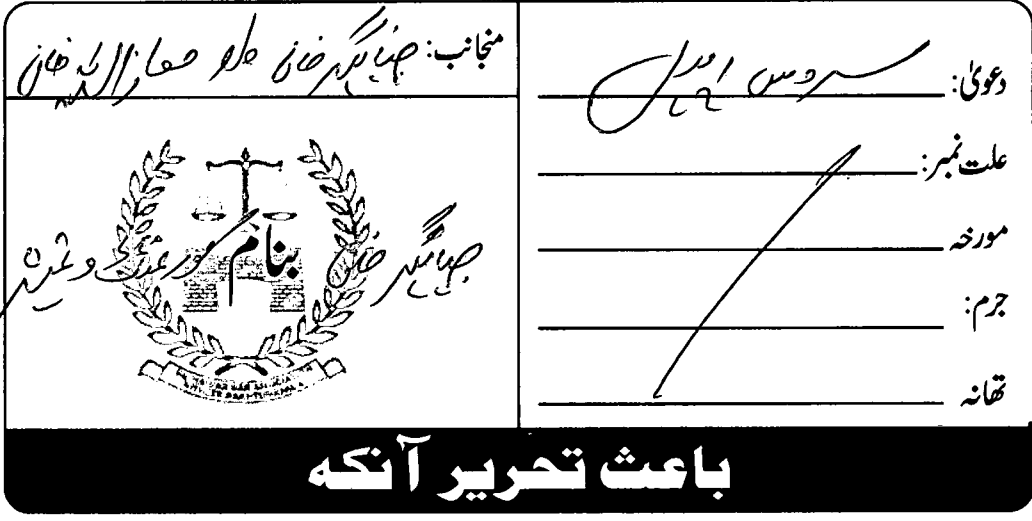 دعویٰ: سروس اپیل
علت نمبر:
مورخہ
جرم:
تھانہ
منجانب: جہانگیر خان ولد معاذ اللہ خان
جہانگیر خان بنام گورنمنٹ وغیرہ
باعث تحریر آنکہ